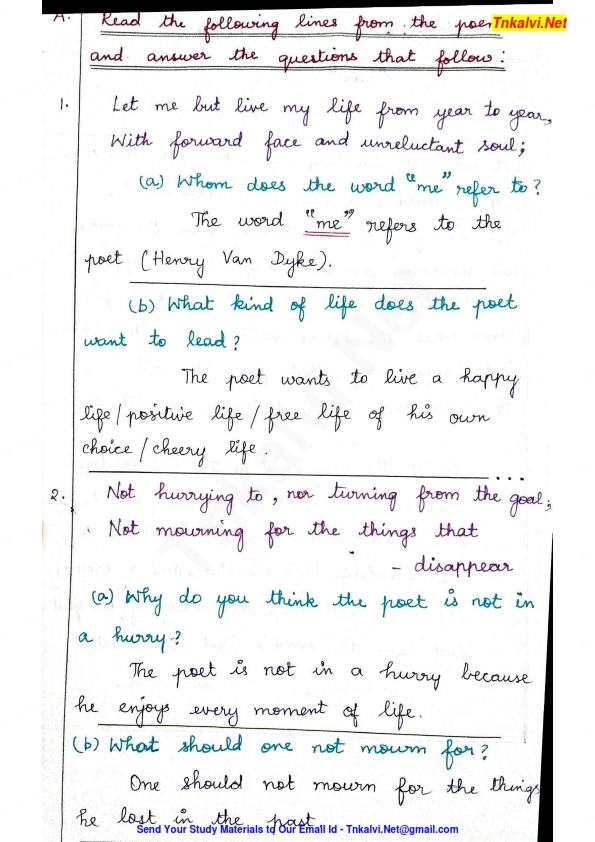 A. Read the following lines from the poem Tnkalvi.Net
and answer the questions that follow:
1. Let me but live my life from year to year,
With forward face and unreluctant soul;
(a) Whom does the word "me" refer to?
The word "me" refers to the
poet (Henry Van Dyke).
(b) What kind of life does the poet
want to lead?
The poet wants to live a happy
life/positive life/free life of his own
choice/cheery life.
...
2. Not hurrying to, nor turning from the goal;
Not mourning for the things that
- disappear
(a) Why do you think the poet is not in
a hurry?
The poet is not in a hurry because
he enjoys every moment of life.
(b) What should one not mourn for?
One should not mourn for the things
he lost in the past
Send Your Study Materials to Our Email Id - Tnkalvi.Net@gmail.com
Tnkalvi.Net